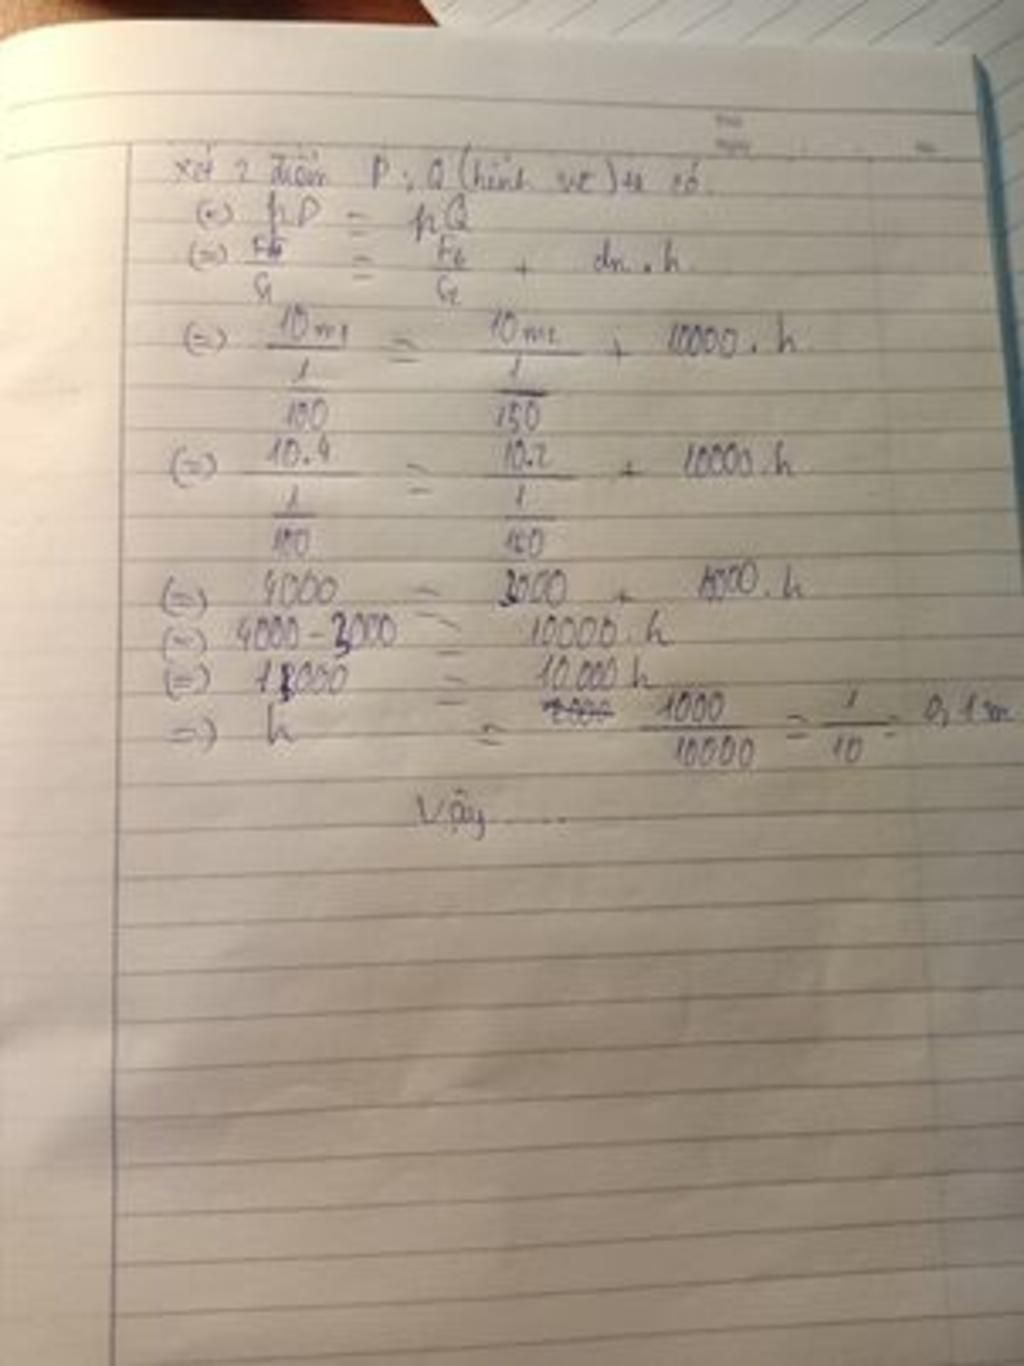 Xét 2 điểm P; Q (hình vẽ) ta có
(=) pP = pQ
(=) F1/S1 = F2/S2 + dn.h
(=) 10m1/(1/100) = 10m2/(1/150) + 10000.h
(=) 10.4/(1/100) = 10.2/(1/150) + 10000.h
(=) 4000 = 3000 + 10000.h
(=) 4000 - 3000 = 10000.h
(=) 1000 = 10.000h
=) h = 1000/10000 = 1/10 = 0,1m
Vậy .....